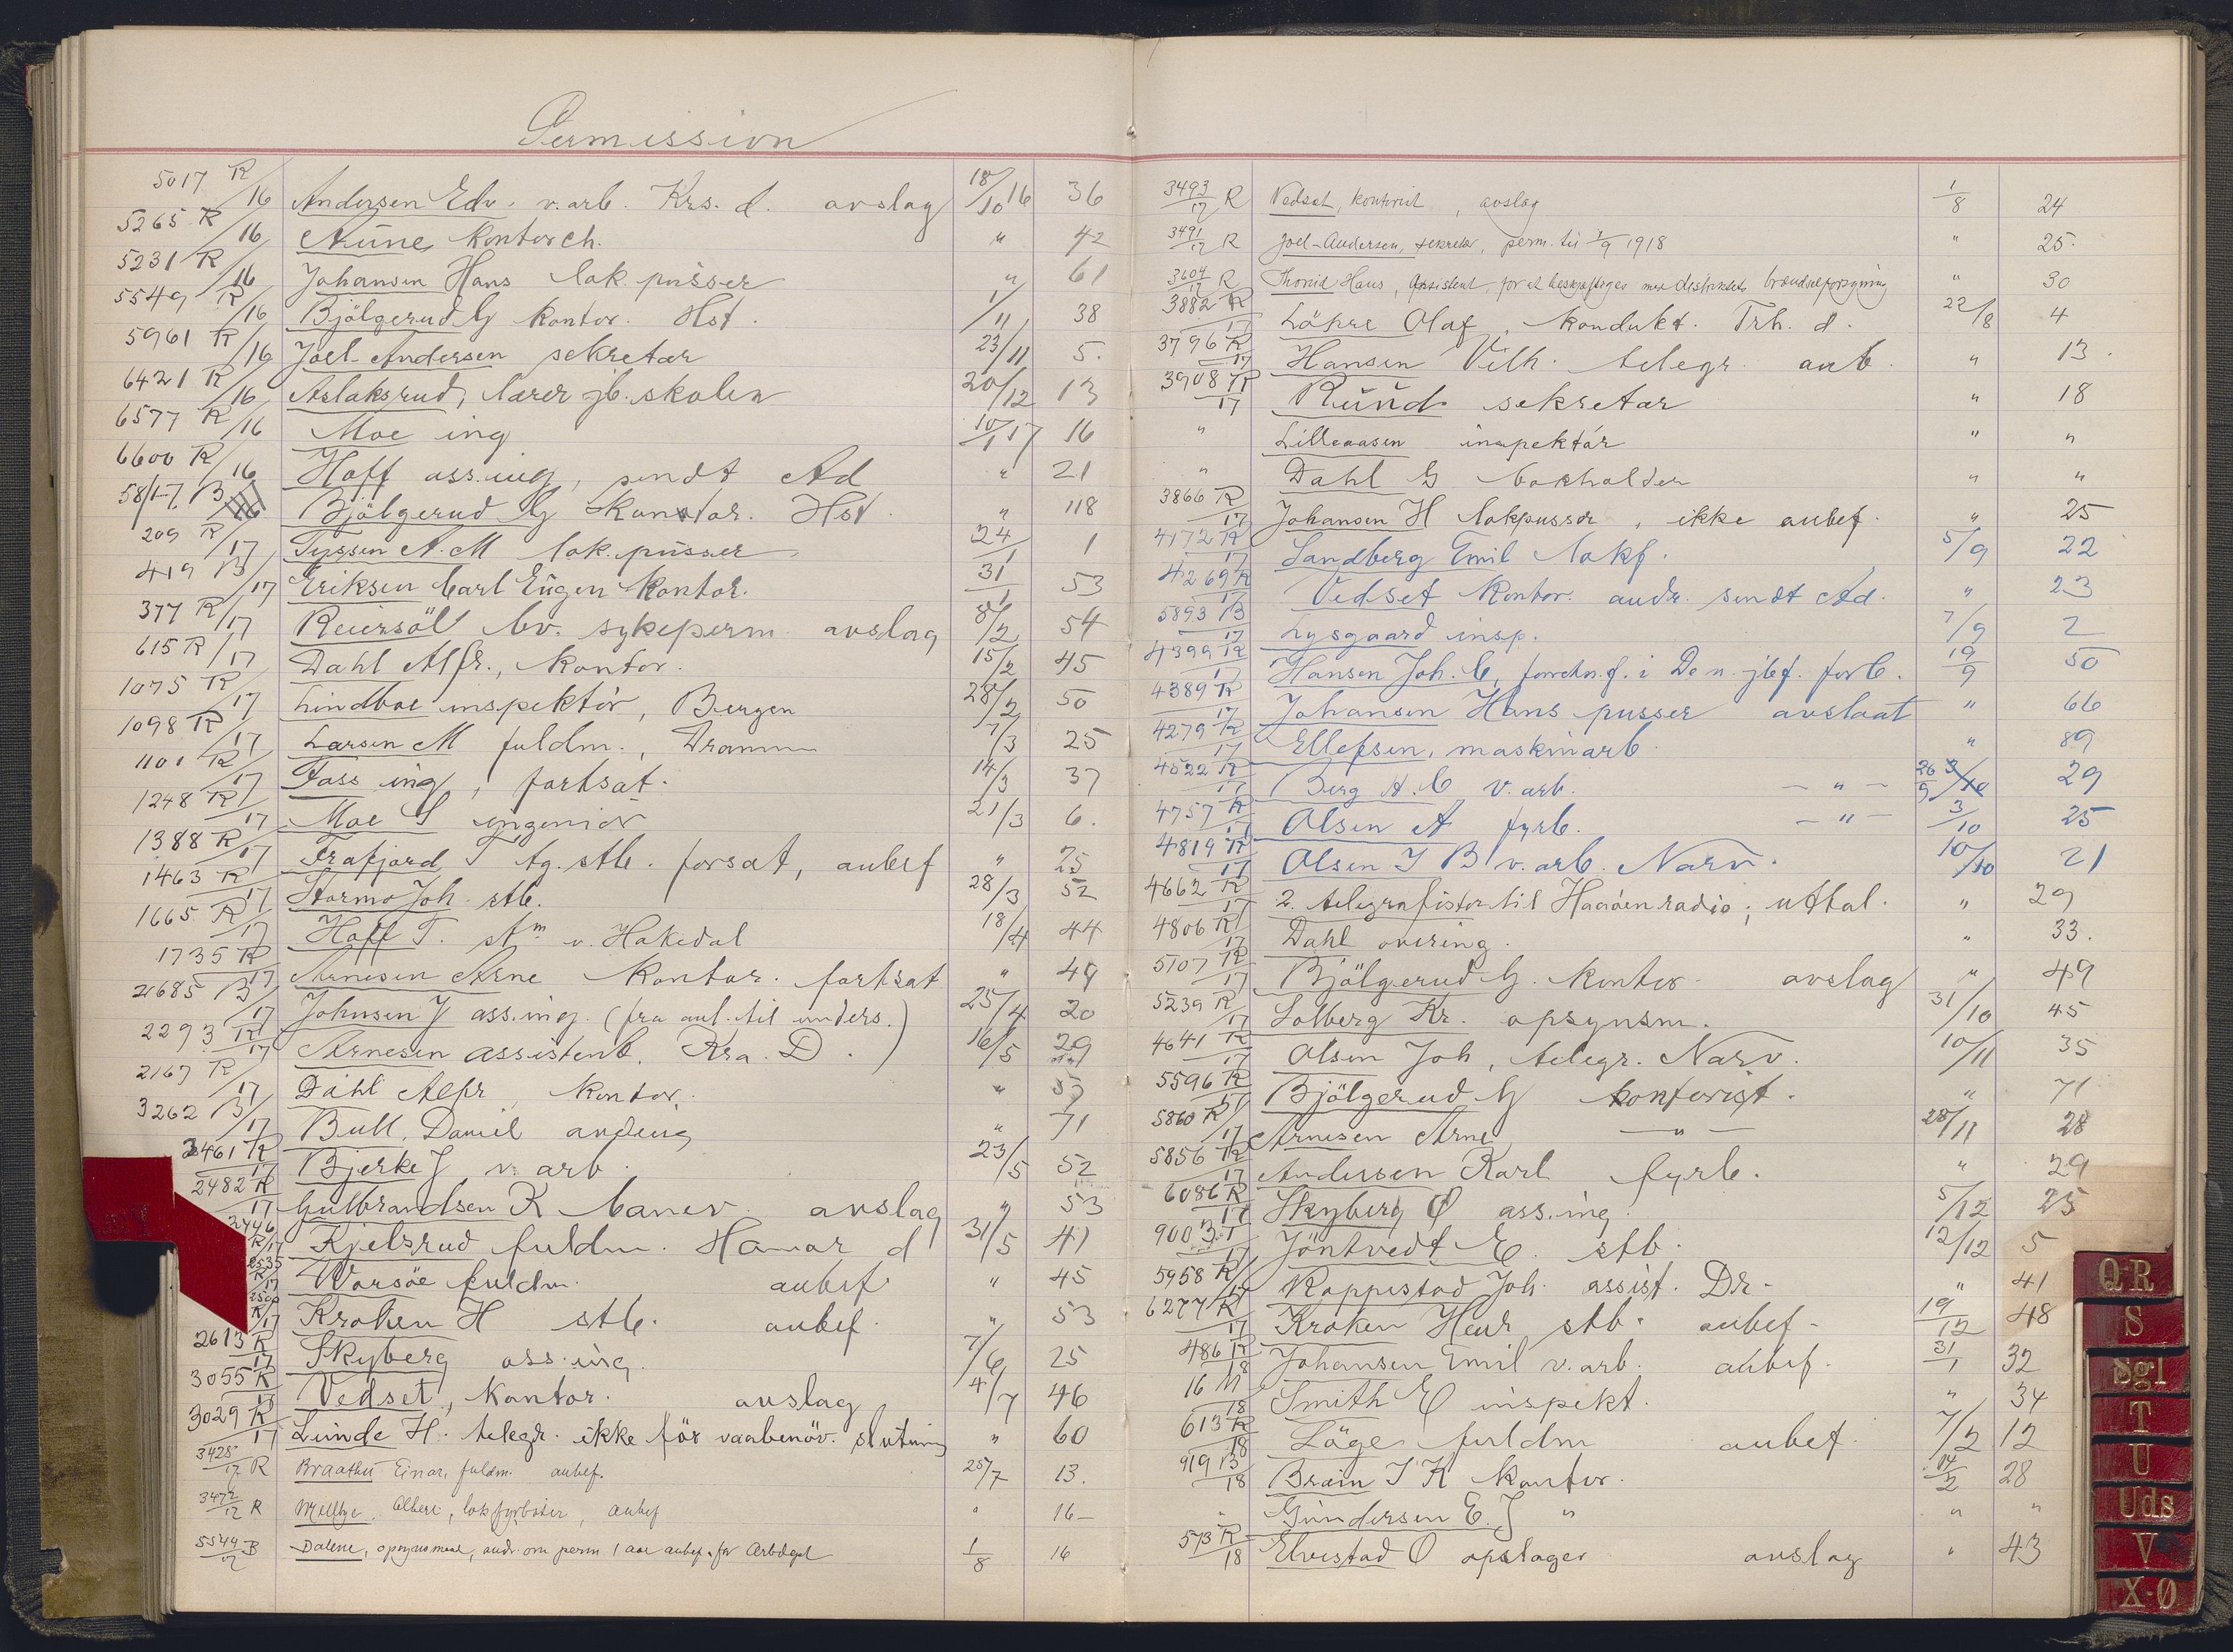 Permission
5017 R/16 Andersen Edv. v.arb. Krs. d. avslag 18/10 16 36
5265 R/16 Aune kontorch. " 42
5231 R/16 Johansen Hans lok. pusser " 61
5549 R/16 Bjölgerud G kontor. Hst. 1/11 38
5961 R/16 Joel-Andersen sekretær 23/11 5.
6421 R/16 Aslaksrud, lærer jb. skolen 20/12 13
6577 R/16 Moe ing 10/1 17 16
6600 R/16 Hoff ass.ing, sendt Ad " 21
58/17 B Bjölgerud G Kontor. Hst. " 118
209 R/17 Tyssen A.M lok. pusser 24/1 1
419 B/17 Eriksen Carl Eugen Kontor. 31/1 53
377 R/17 Reiersöl bv. sykeperm. avslag 8/2 54
615 R/17 Dahl Alfr., kontor. 15/2 45
1075 R/17 Lindboe inspektör, Bergen 28/2 50
1098 R/17 Larsen M fuldm., Drammen 7/3 25
1101 R/17 Foss ing, fortsat. 14/3 37
1248 R/17 Moe S ingeniör 21/3 6.
1388 R/17 Frafjord T tg. stb. forsat, anbef " 25
1463 R/17 Stormo Joh. stb. 28/3 52
1665 R/17 Hoff T. stm v. Hakedal 18/4 44
1735 R/17 Arnesen Arne Kontor. fortsat " 49
2685 B/17 Johnsen J ass.ing. (fra anl. til unders.) 25/4 20
2293 R/17 Arnesen assistent, Kra. D. 16/5 29
2167 R/17 Dahl Alfr, kontor. " 53
3262 B/17 Bull, Daniel avdeing " 71
2461 R/17 Bjerke J v. arb. 23/5 52
2482 R/17 Gulbrandsen K banev. avslag " 53
2446 R/17 Kjelsrud fuldm. Hamar d 31/5 41
2535 R/17 Worsöe fuldm. anbef " 45
2500 R/17 Kroken H stb. anbef. " 53
2613 R/17 Skyberg ass.ing. 7/6 25
3055 R/17 Vedset, kontor. avslag 4/7 46
3029 R/17 Lunde H. telegr. ikke för vaabenöv. slutning " 60
3428/17 R Braathu Einar, fuldm. anbef. 25/7 13.
3472/17 R Mellbye Albert, lokfyrböter, anbef " 16-
5544/17 B Dalene, opsynsmand, andr. om perm 1 aar anbef. for Arbdept 1/8 16
3493/17 R Vedset, kontorist, avslag 1/8 24
3491/17 R Joel-Andersen, sekretær, perm. til 1/9 1918 " 25.
3604/17 R Thorud Hans, Assistent, for at beskjæftiges med distriktets brændselforsyning " 30
3882 R/17 Löpre Olaf, kondukt. Trh. d. 22/8 4
3796 R/17 Hansen Vilh. telegr. anb. " 13.
3908 R/17 Ruud sekretær " 18
" Lilleaasen inspektör " "
" Dahl G bokholder " "
3866 R/17 Johansen H lokpusser, ikke anbef. " 25
4172 R/17 Landberg Emil lokf. 5/9 22
4269 R/17 Vedset kontor. andr. sendt Ad. " 23
5893 B/17 Lysgaard insp. 7/9 2
4399 R/17 Hansen Joh. C, forretn.f. i De n. jbf. forb. 19/9 50
4389 R/17 Johansen Hans pusser avslaat " 66
4279 R/17 Ellefsen, maskinarb. " 89
4522 R/17 Berg A. C v. arb. - " - 26/9 29
4757 R/17 Olsen A fyrb. - " - 3/10 25
4819 R/17 Olsen I B v. arb. Narv. 10/10 21
4662 R/17 2. telegrafister til Haaöen radio; uttal. " 29
4806 R/17 Dahl overing. " 33.
5107 R/17 Bjölgerud G. kontor. avslag " 49
5239 R/17 Solberg Kr. opsynsm. 31/10 45
4641 R/17 Olsen Joh, telegr. Narv. 10/11 35
5596 R/17 Bjölgerud G kontorist. " 71
5860 R/17 Arnesen Arne — " — 28/11 28
5856 R/17 Andersen Karl fyrb. " 29
6086 R/17 Skyberg Ø ass.ing. 5/12 25
9003 B/17 Jöntvedt E. stb. 12/12 5
5958 R/17 Roppestad Joh. assist. Dr- " 41
6277 R/17 Kroken Henr stb. anbef- 19/12 48
486 R/18 Johansen Emil v. arb. anbef. 31/1 32
16 M/18 Smith E inspekt. " 34
613 R/18 Låge fuldm anbef. 7/2 12
919 B/18 Bruin I K kontor. 14/2 28
" Gundersen E. J " " "
573 R/18 Elvestad O opslager avslag " 43
Q-R
S
Sgl
T
U
Uds
V
X-Ø